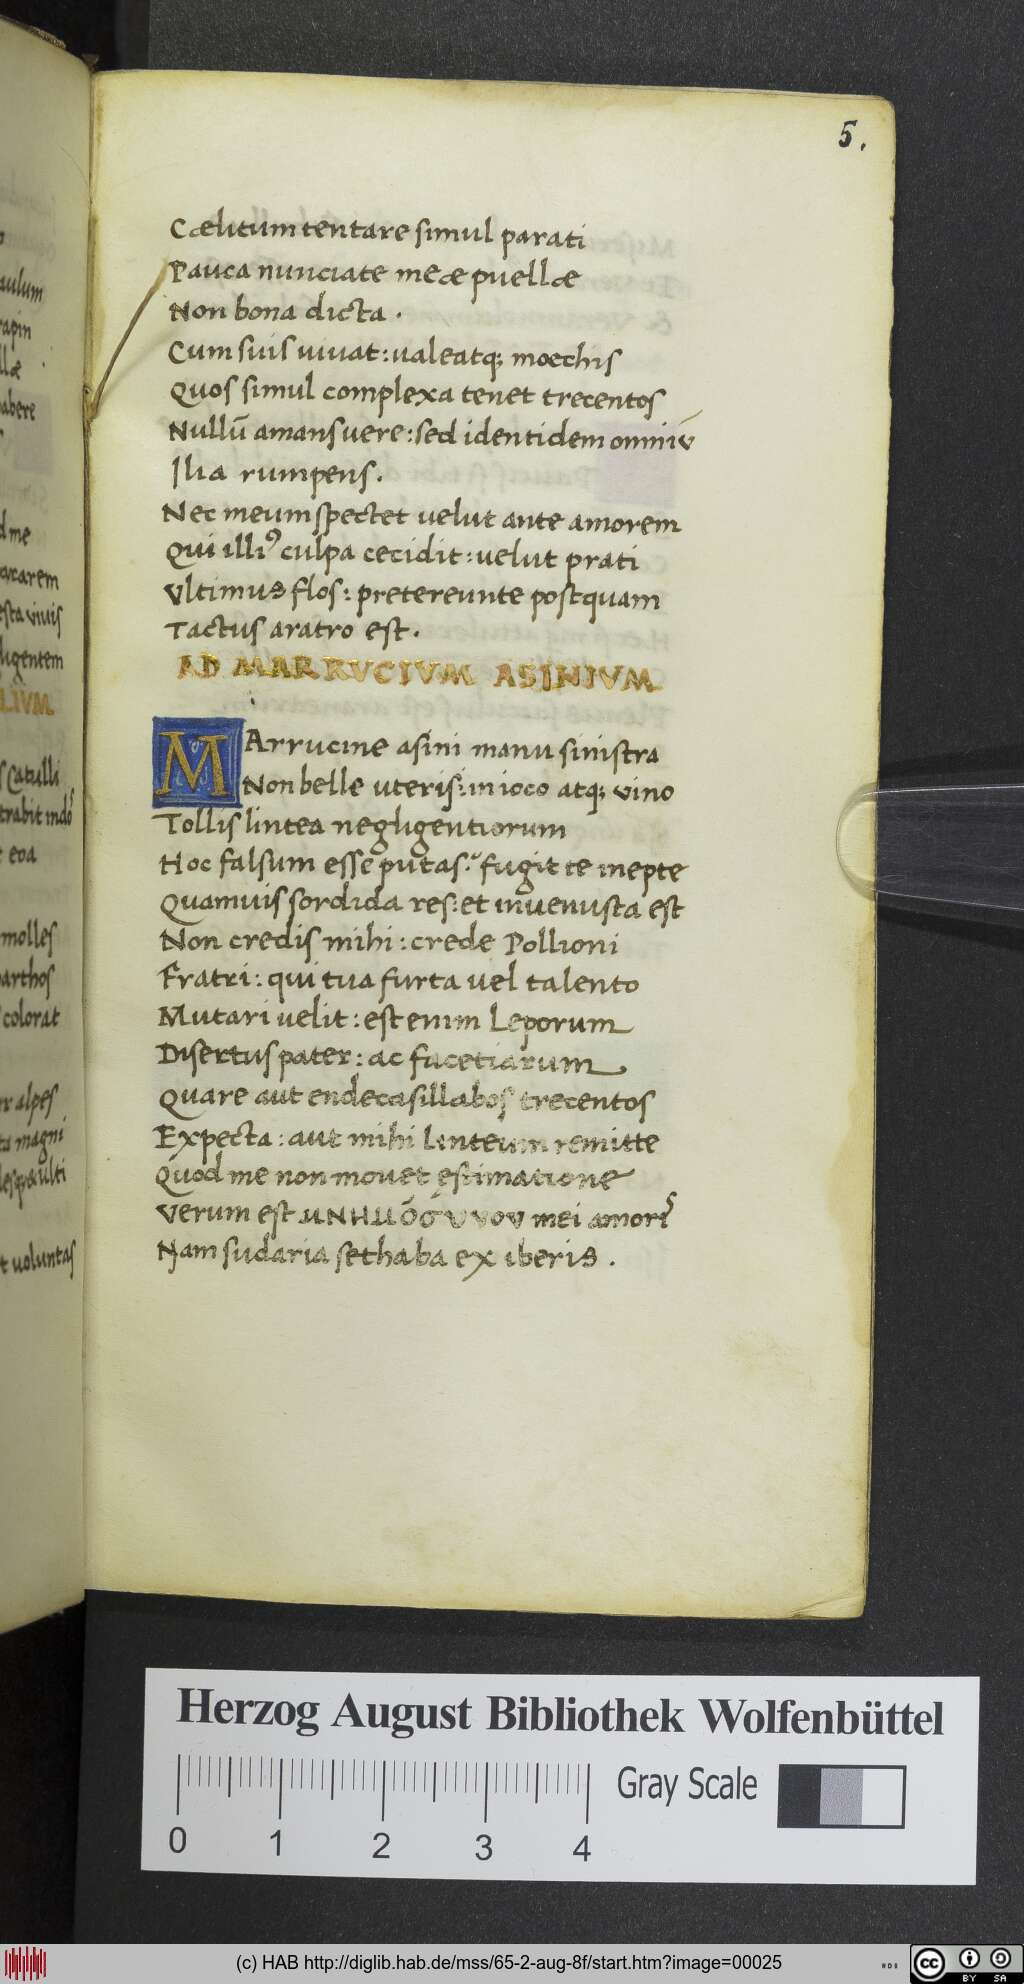 5.
Cælitum tentare simul parati
Pauca nunciate meæ puellæ
Non bona dicta .
Cum suis vivat : valeatq; moechis
Quos simul complexa tenet trecentos
Nullũ amans vere : sed identidem omniũ
Ilia rumpens .
Nec meum spectet velut ante amorem
Qui illiꝰ culpa cecidit : velut prati
Vltimus flos : pretereunte postquam
Tactus aratro est .
AD MARRVCIVM ASINIVM
MArrucine asini manu sinistra
Non belle uteris : in ioco atq; vino
Tollis lintea negligentiorum
Hoc falsum esse putas : fugit te inepte
Quamvis sordida res : et invenusta est
Non credis mihi : crede Pollioni
Fratri : qui tua furta vel talento
Mutari velit : est enim Leporum
Disertus pater : ac facetiarum
Quare aut endecasillabos trecentos
Expecta : aut mihi linteum remitte
Quod me non movet estimatione
Verum est mei
Nam sudaria sethaba ex iberis .
aulum
rapin
llæ
habere
d me
vocarem
esta vivis
ligentem
LIVM
s Catulli
t eoa
molles
parthos
colorat
er alpes
ta magni
t voluntas
Herzog August Bibliothek Wolfenbüttel
0 1 2 3 4
Gray Scale
(c) HAB http://diglib.hab.de/mss/65-2-aug-8f/start.htm?image=00025
cc BY SA